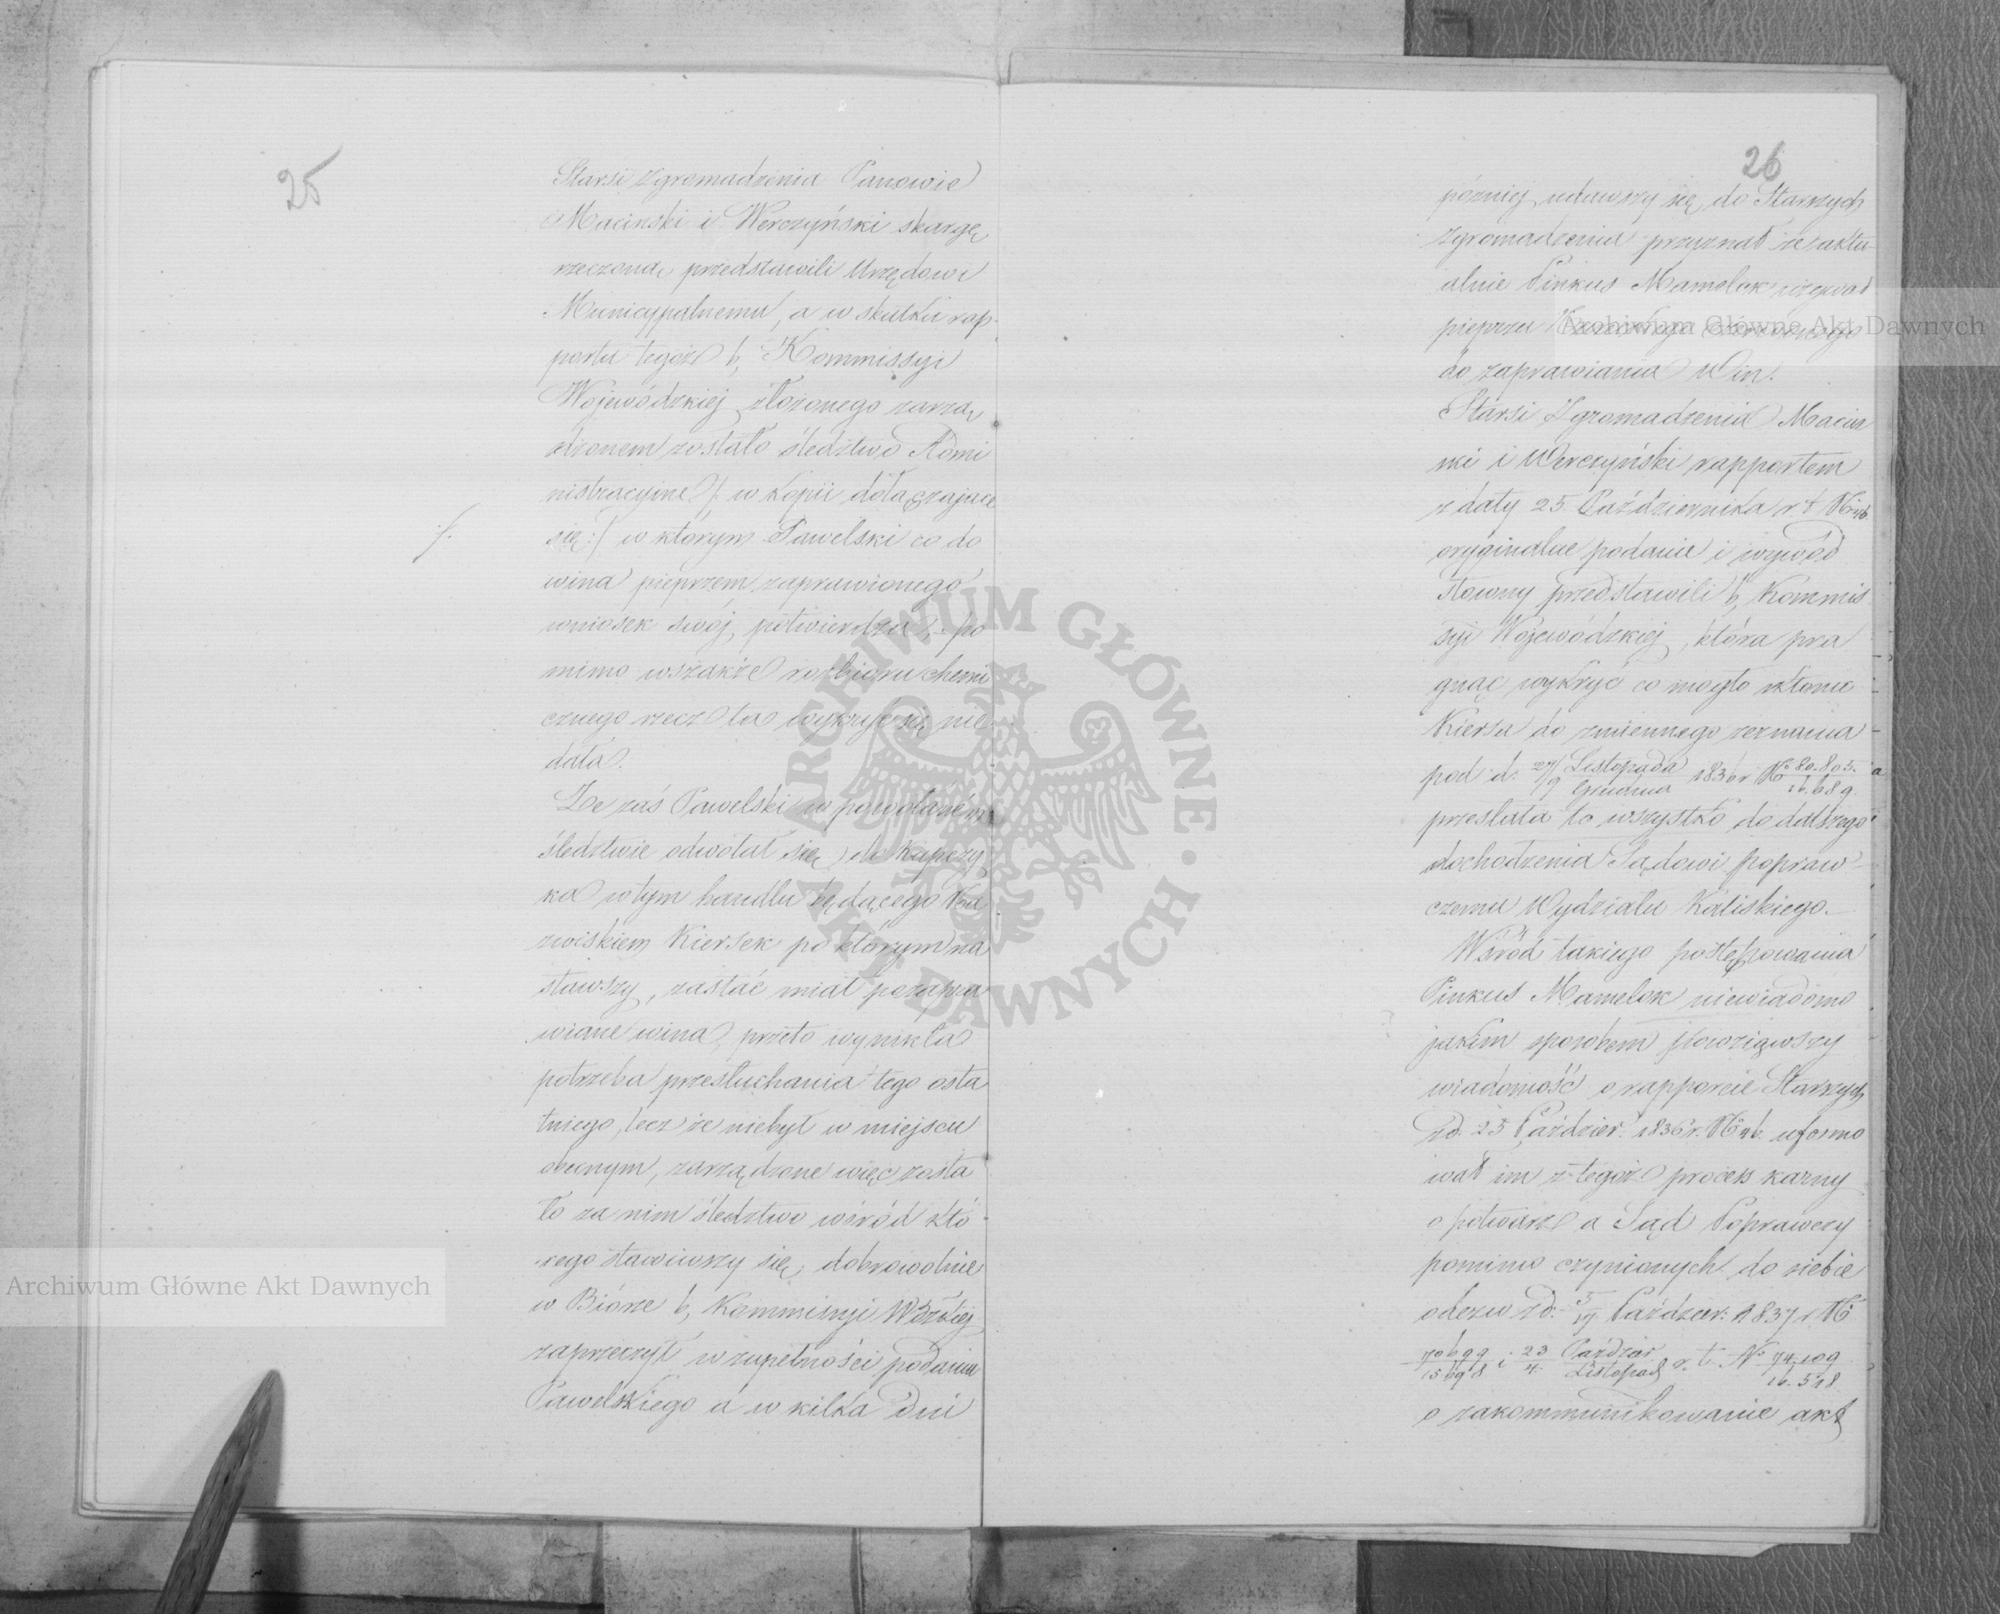 25
Starsi Zgromadzenia Panowie
Macinski i Werczyński skargę
rzeczoną przedstawili Urzędowi
Municypalnemu, a w skutku rap-
portu tegoż b. Kommissyi
Wojewódzkiej złożonego zarzą
dzonem zostało śledztwo Admi
nistracyjne /: w kopii dołączające
się :/ w którym Pawelski co do
wina pieprzem zaprawionego
wniosek swój potwierdza, po
mimo wszakże rozbioru chemi
cznego rzecz ta wykryć się nie
dała.
Że zaś Pawelski w powołaném
śledztwie odwołał się do kupczy
ka w tym handlu będącego Na
zwiskiem Kiersek po którym na
stawszy, zastać miał pozapra
wiane wina, przeto wynikła
potrzeba przesłuchania tego osta
tniego, lecz że niebył w miejscu
obecnym, zarządzone więc zosta
ło za nim śledztwo wśród któ-
rego stawiwszy się dobrowolnie
w Biórze b. Kommissyi Wdzkiej
zaprzeczył w zupełności podaniu
Pawelskiego a w kilka Dni
26
później udawszy się do Starszych
Zgromadzenia przyznał że aktu
alnie Pinkus Mamelok używał
pieprzu
do zaprawiania Win.
Starsi Zgromadzenia Macin
ski i Werczyński rapportem
z daty 25 Października r t N 46.
oryginalne podanie i wywód
słowny przedstawili b. Kommis
syi Wojewódzkiej, która pra
gnąc wykryć co mogło skłonić
Kiersa do zmiennego zeznania
pod d. 27/9 Listopada/Grudnia 1836 r N° 80.805./16.689. a
przesłała to wszystko do dalszego
dochodzenia Sądowi popraw-
czemu Wydziału Kaliskiego.
Wśród takiego postępowania
Pinkus Mamelok niewiadomo
jakim sposobem powziąwszy
wiadomość o rapporcie Starszych
z d. 25 Paździer. 1836 r. N 46. uformo
wał im z tegoż proces karny
o potwarz a Sąd Poprawczy
pomimo czynionych do siebie
odezw z d. 5/17 Paździer. 1837 r N
70699/15698 i 23/4 Paździer/Listopad r. t. N° 74.109/16.518
o zakommunikowanie akt
Archiwum Główne Akt Dawnych
Archiwum Główne Akt Dawnych
ARCHIWUM GŁÓWNE · AKT DAWNYCH ·